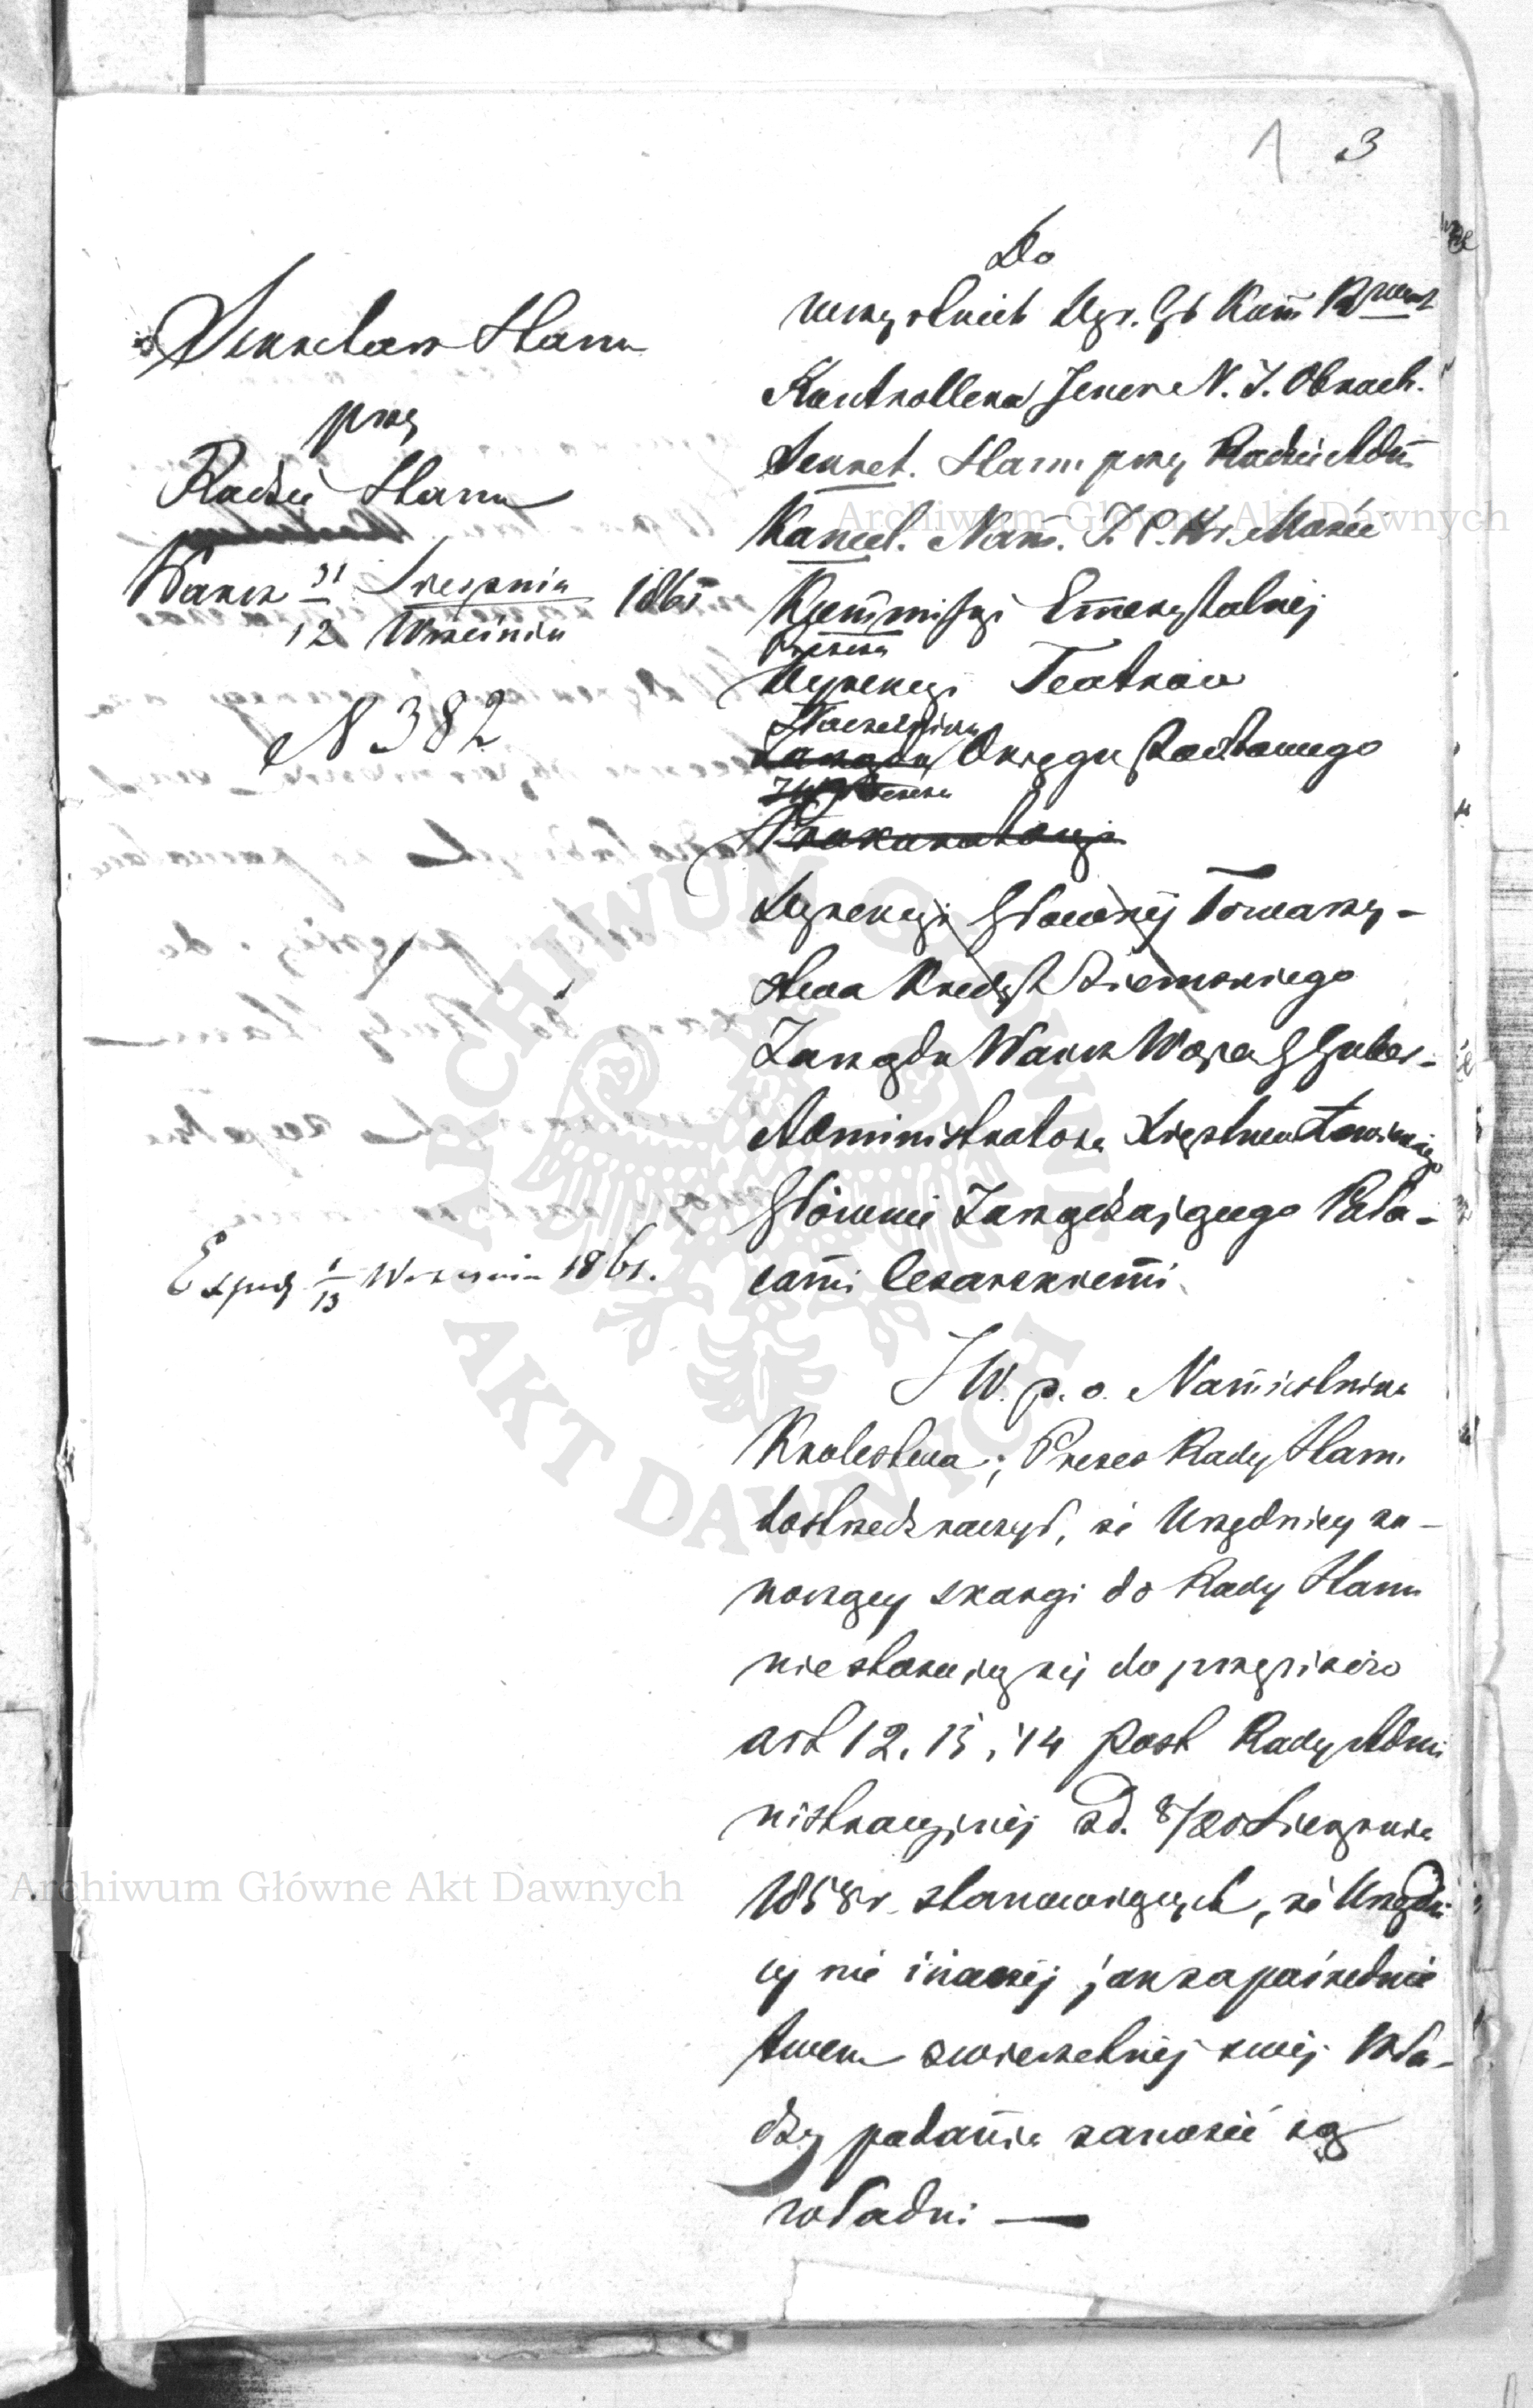 1 3
Sekretarz Stanu
przy
Radzie Stanu
Warsz 31 Sierpnia 1861
12 Wrześniu
N 382
Exped 1 Września 1861.
13
Do
wszystkich Dyr. Gł Kom Rz
Kontrollera Jener N. I. Obrach.
Sekret. Stanu przy Radzie Adm
Kancel. Nam. J. C. Kr. Mości
Kommissyi Emerytalnej
Prezesa
Dyrekcyi Teatrów
Naczelnika
Zarządu Okręgu Pocztowego
JW Prezesa
Prokuratoryi
Dyrekcyi Głównej Towarzy-
stwa Kredyt Ziemskiego
Zarządu Warsz Woje G Guber-
Administratora Księstwa Łowickiego
Głównie Zarządzającego Pała-
cami Cesarskiemi
JW. p. o. Namiestnika
Królestwa, Prezes Rady Stanu
dostrzedz raczył, że Urzędnicy za-
noszący skargi do Rady Stanu
nie stosują się do przepisów
art 12. 13 i 14 Post Rady Admi
nistracyjnej zd. 8/20 Sierpnia
1858 r. stanowiących, że Urzędni
cy nie inaczej jak za pośrednic
twem zwierzchniej swej Wła-
dzy podania zanosić są
władni —
Archiwum Główne Akt Dawnych
Archiwum Główne Akt Dawnych
ARCHIWUM GŁÓWNE AKT DAWNYCH